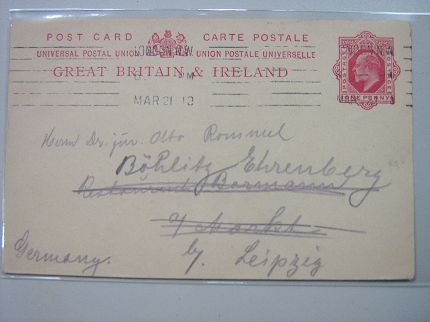 POST CARD CARTE POSTALE
LONDON. N.W.
UNIVERSAL POSTAL UNION UNION POSTALE UNIVERSELLE
GREAT BRITAIN & IRELAND
MAR 21 13
ONE PENNY
Herrn Dr. jur. Otto Rommel
Böhlitz Ehrenberg
Restaurant Bormann
b/. Leipzig
Germany.